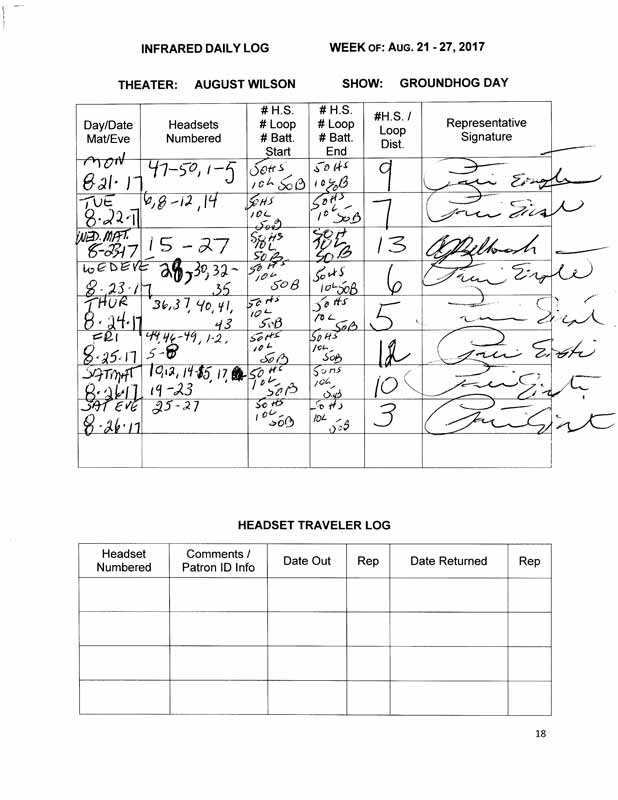 INFRARED DAILY LOG WEEK OF: AUG. 21 - 27, 2017
THEATER: AUGUST WILSON SHOW: GROUNDHOG DAY
Day/Date Mat/Eve Headsets Numbered # H.S. # Loop # Batt. Start # H.S. # Loop # Batt. End #H.S. / Loop Dist. Representative Signature
MON 8-21-17 47-50, 1-5 50HS 10L 50B 50HS 10L 50B 9
TUE 8-22-17 6, 8-12, 14 50HS 10L 50B 50HS 10L 50B 7
WED. MAT. 8-23-17 15 - 27 50HS 10L 50B 50H 10L 50B 13
WEDEVE 8-23-17 28, 30, 32-35 50HS 10L 50B 50HS 10L 50B 6
THUR 8-24-17 36, 37, 40, 41, 43 50HS 10L 50B 50HS 10L 50B 5
FRI 8-25-17 44, 46-49, 1-2, 5-8 50HS 10L 50B 50HS 10L 50B 12
SATMAT 8-26-17 10, 12, 14-15, 17, 19-23 50HS 10L 50B 50HS 10L 50B 10
SAT EVE 8-26-17 25-27 50HS 10L 50B 50HS 10L 50B 3
HEADSET TRAVELER LOG
Headset Numbered Comments / Patron ID Info Date Out Rep Date Returned Rep
18